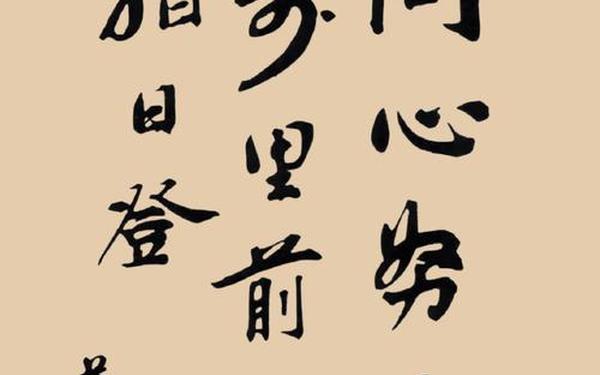 同心努
里前
指日登